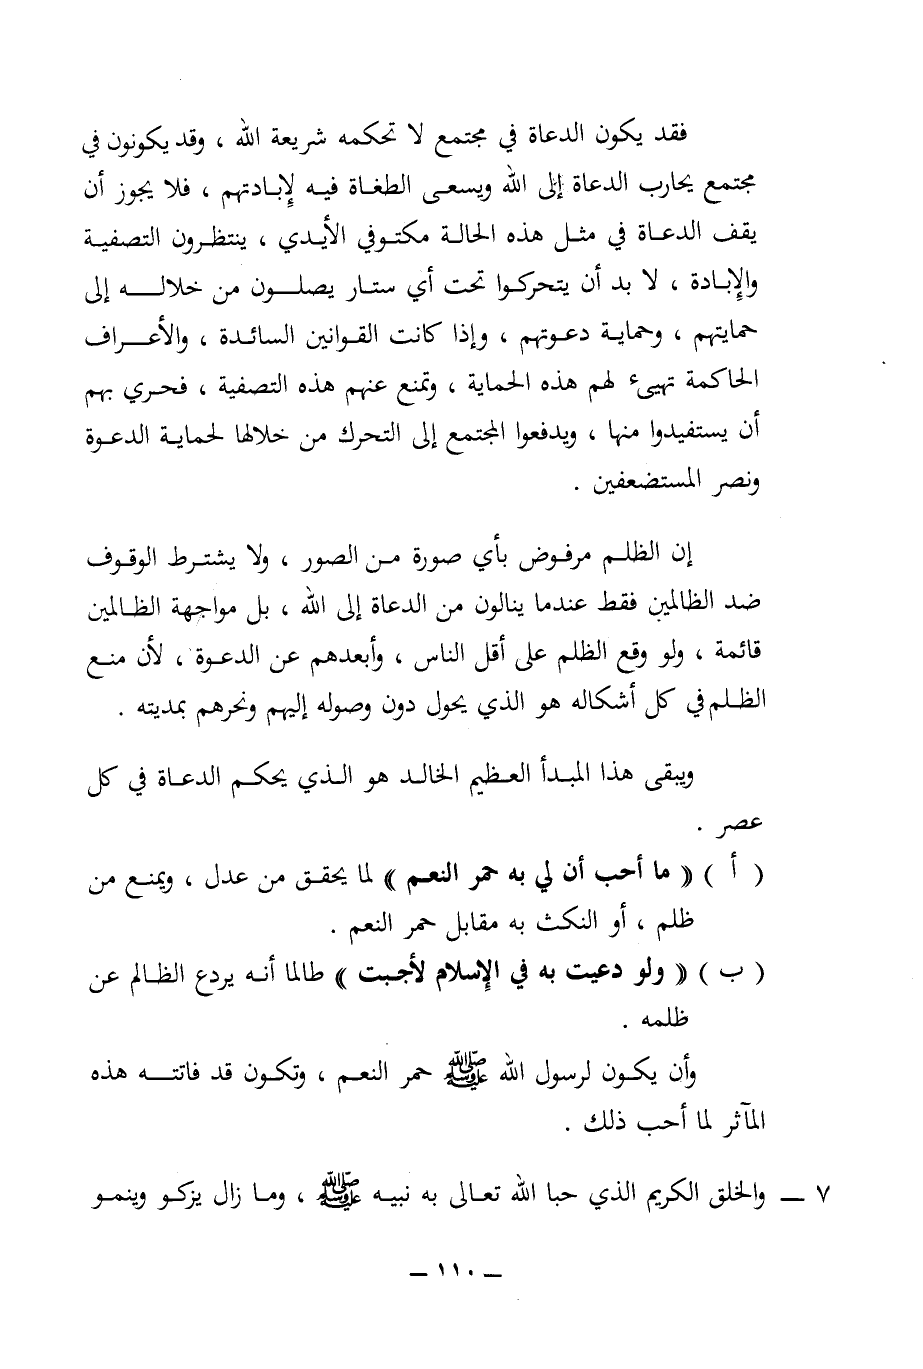 فقد يكون الدعاة في مجتمع لا تحكمه شريعة الله ، وقد يكونون في
مجتمع يحارب الدعاة إلى الله ويسعى الطغاة فيه لإبادتهم ، فلا يجوز أن
يقف الدعاة في مثل هذه الحالة مكتوفي الأيدي ، ينتظرون التصفية
والإبادة ، لا بد أن يتحركوا تحت أي ستار يصلون من خلاله إلى
حمايتهم ، وحماية دعوتهم ، وإذا كانت القوانين السائدة ، والأعراف
الحاكمة تهيىء لهم هذه الحماية ، وتمنع عنهم هذه التصفية ، فحري بهم
أن يستفيدوا منها ، ويدفعوا المجتمع إلى التحرك من خلالها لحماية الدعوة
ونصر المستضعفين .
إن الظلم مرفوض بأي صورة من الصور ، ولا يشترط الوقوف
ضد الظالمين فقط عندما ينالون من الدعاة إلى الله ، بل مواجهة الظالمين
قائمة ، ولو وقع الظلم على أقل الناس ، وأبعدهم عن الدعوة ، لأن منع
الظلم في كل أشكاله هو الذي يحول دون وصوله إليهم ونحرهم بمديته .
ويبقى هذا المبدأ العظيم الخالد هو الذي يحكم الدعاة في كل
عصر .
( أ ) « ما أحب أن لي به حمر النعم » لما يحقق من عدل ، ويمنع من
ظلم ، أو النكث به مقابل حمر النعم .
( ب ) « ولو دعيت به في الإسلام لأجبت » طالما أنه يردع الظالم عن
ظلمه .
وأن يكون لرسول الله ﷺ حمر النعم ، وتكون قد فاتته هذه
المآثر لما أحب ذلك .
٧ ـ والخلق الكريم الذي حبا الله تعالى به نبيه ﷺ ، وما زال يزكو وينمو
ـ ١١٠ ـ